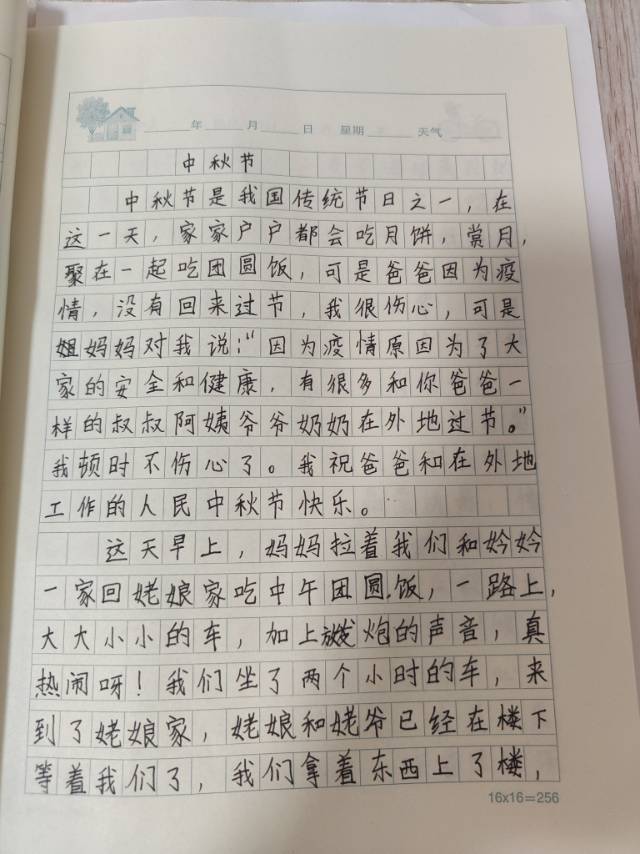 年 月 日 星期 天气
中秋节
中秋节是我国传统节日之一，在
这一天，家家户户都会吃月饼，赏月，
聚在一起吃团圆饭，可是爸爸因为疫
情，没有回来过节，我很伤心，可是
姐妈妈对我说：“因为疫情原因为了大
家的安全和健康，有很多和你爸爸一
样的叔叔阿姨爷爷奶奶在外地过节。”
我顿时不伤心了。我祝爸爸和在外地
工作的人民中秋节快乐。
这天早上，妈妈拉着我们和妗妗
一家回姥娘家吃中午团圆饭，一路上，
大大小小的车，加上放炮的声音，真
热闹呀！我们坐了两个小时的车，来
到了姥娘家，姥娘和姥爷已经在楼下
等着我们了，我们拿着东西上了楼，
16x16=256